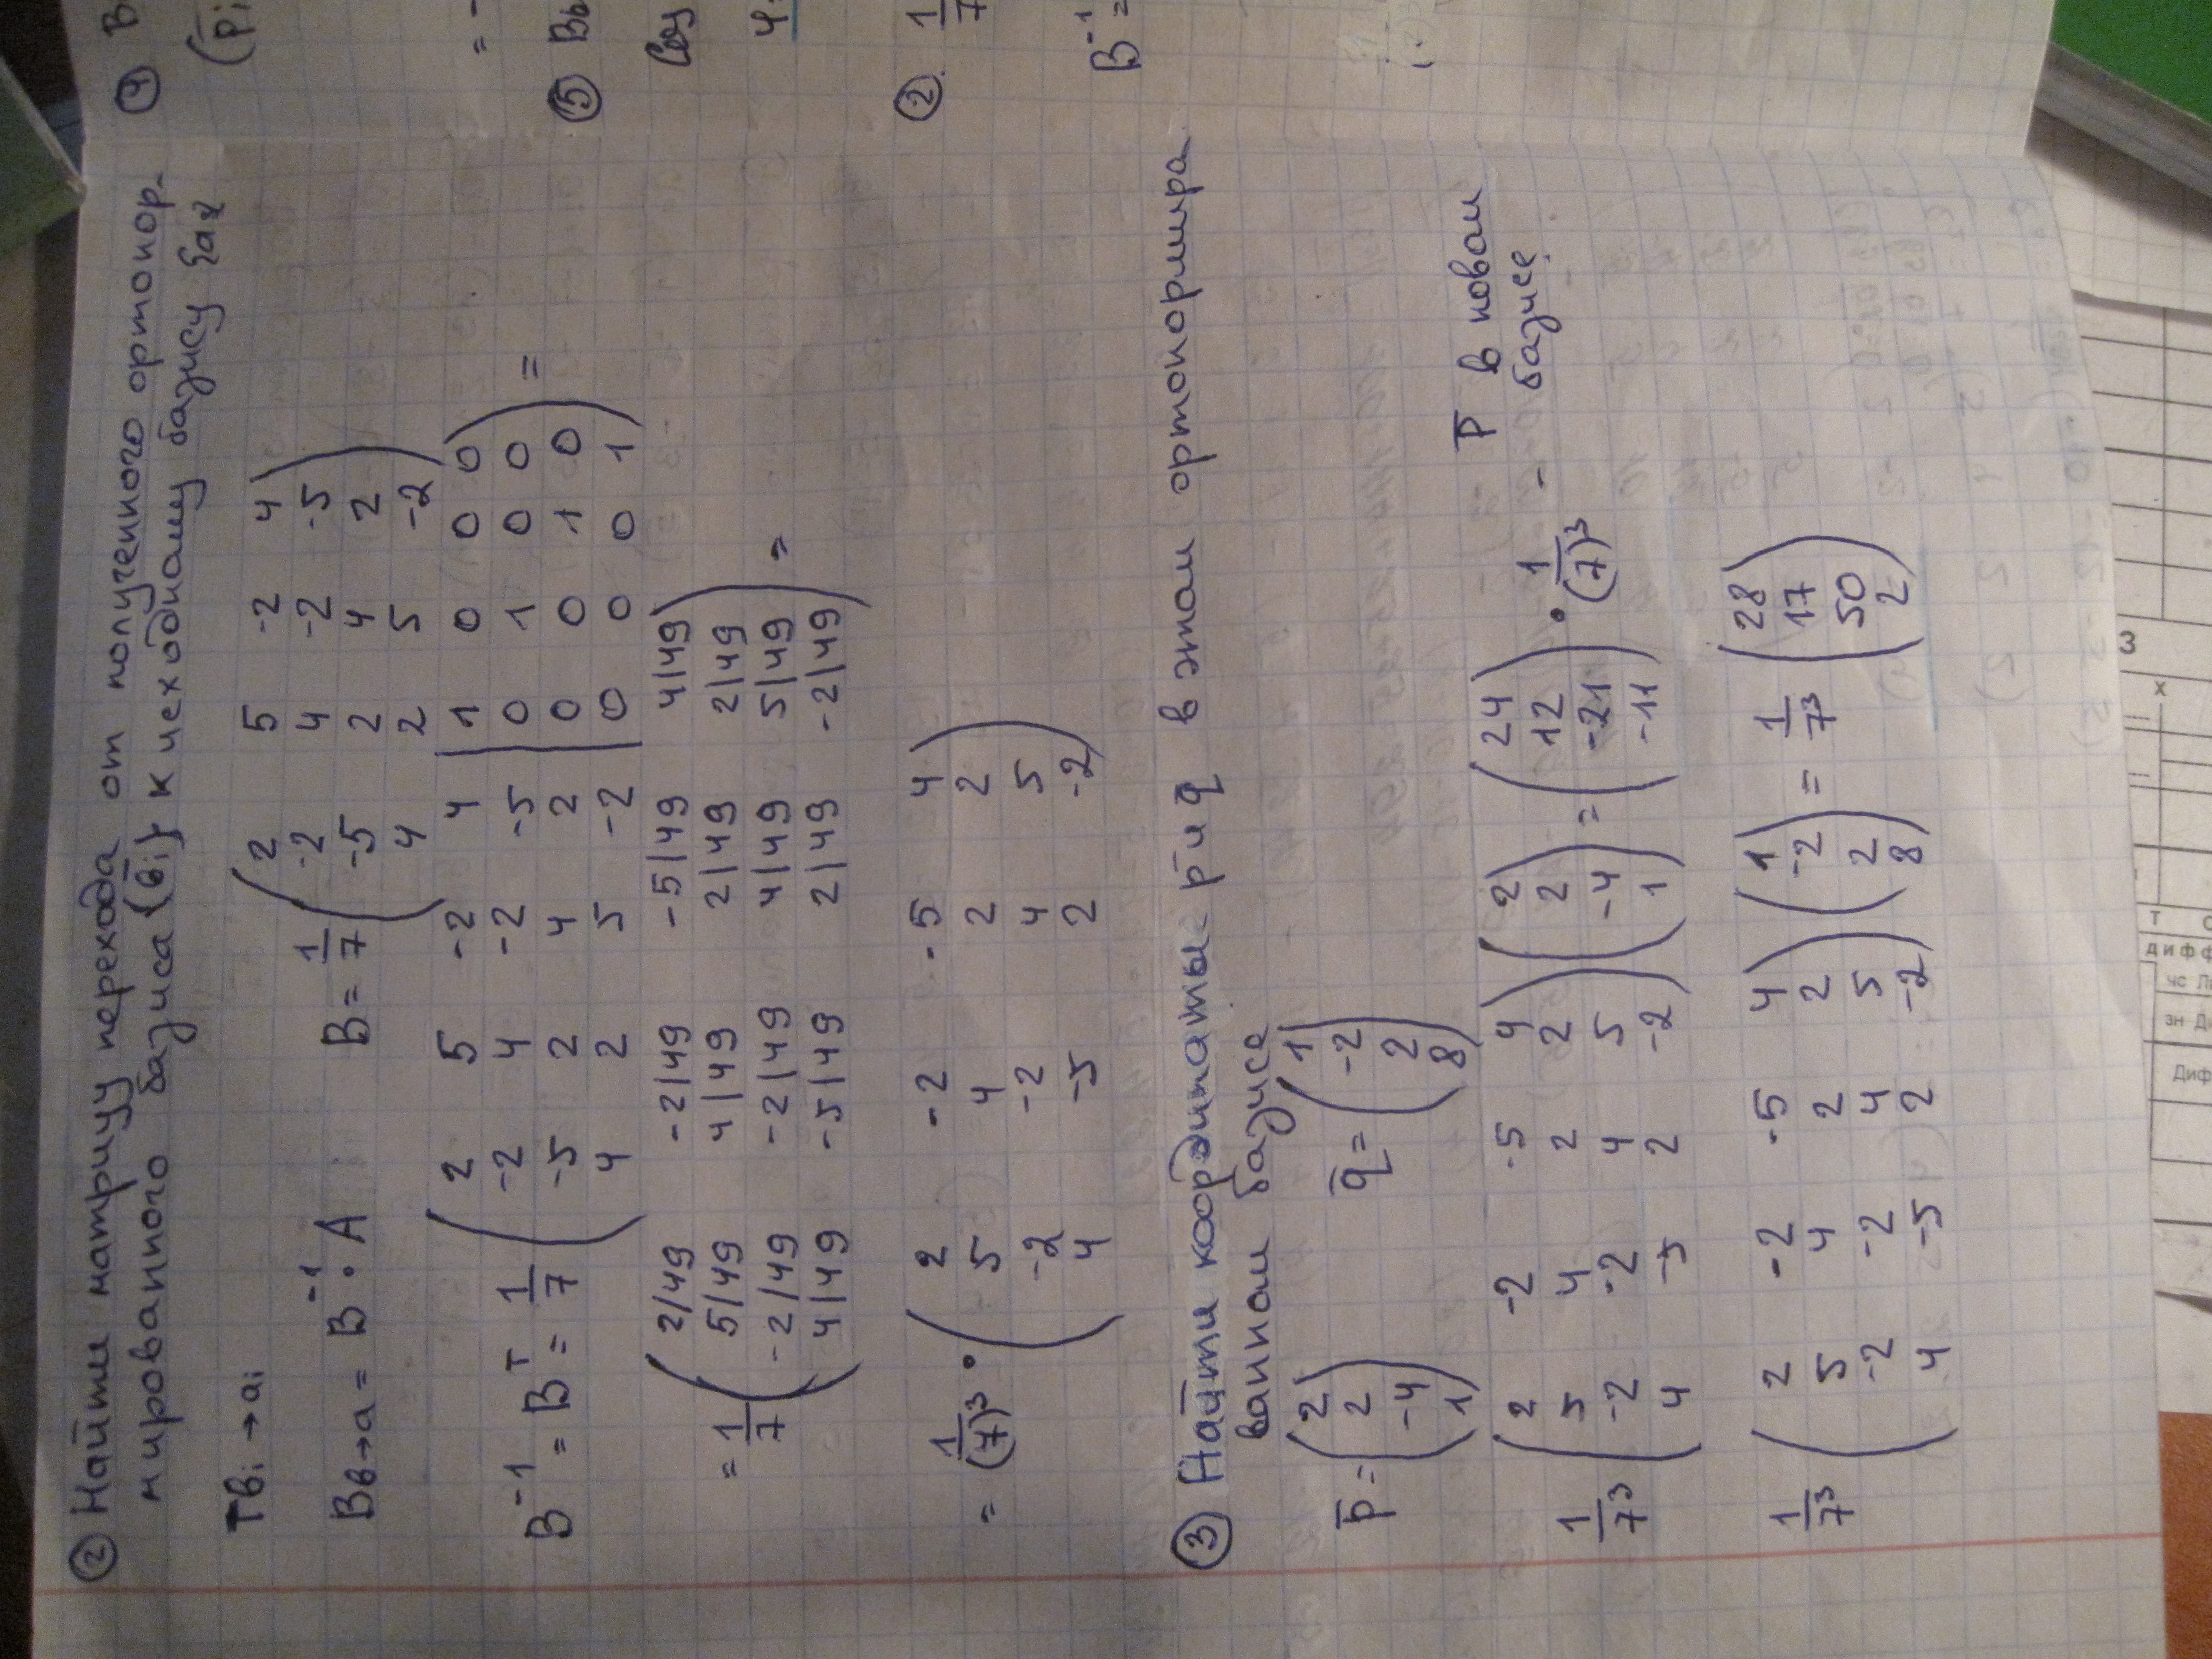 ② Найти матрицу перехода от полученного ортонор-
мированного базиса {b̅i} к исходному базису {ai}
Tbi → ai
Bb→a = B⁻¹ · A B = 1/7 ( 2 5 -2 4
-2 4 -2 -5
-5 2 4 2
4 2 5 -2 )
B⁻¹ = Bᵀ = 1/7 ( 2 5 -2 4 | 1 0 0 0
-2 4 -2 -5 | 0 1 0 0
-5 2 4 2 | 0 0 1 0
4 2 5 -2 | 0 0 0 1 ) =
= 1/7 ( 2/49 -2/49 -5/49 4/49
5/49 4/49 2/49 2/49
-2/49 -2/49 4/49 5/49
4/49 -5/49 2/49 -2/49 ) =
= 1/(7)³ · ( 2 -2 -5 4
5 4 2 2
-2 -2 4 5
4 -5 2 -2 )
③ Найти координаты p̅ и q̅ в этом ортонормиро-
ванном базисе
p̅ = ( 2 2 -4 1 ) q̅ = ( 1 -2 2 8 )
1/7³ ( 2 -2 -5 4
5 4 2 2
-2 -2 4 5
4 -5 2 -2 ) ( 2 2 -4 1 ) = ( 24 12 -21 -11 ) · 1/(7)³ - p̅ в новом
базисе
1/7³ ( 2 -2 -5 4
5 4 2 2
-2 -2 4 5
4 -5 2 -2 ) ( 1 -2 2 8 ) = 1/7³ ( 28 17 50 2 )
④ В
(p̅i
= -
⑤ Вы
② 1/7
B⁻¹ =
3
x
Т
дифф
зн Д
Диф